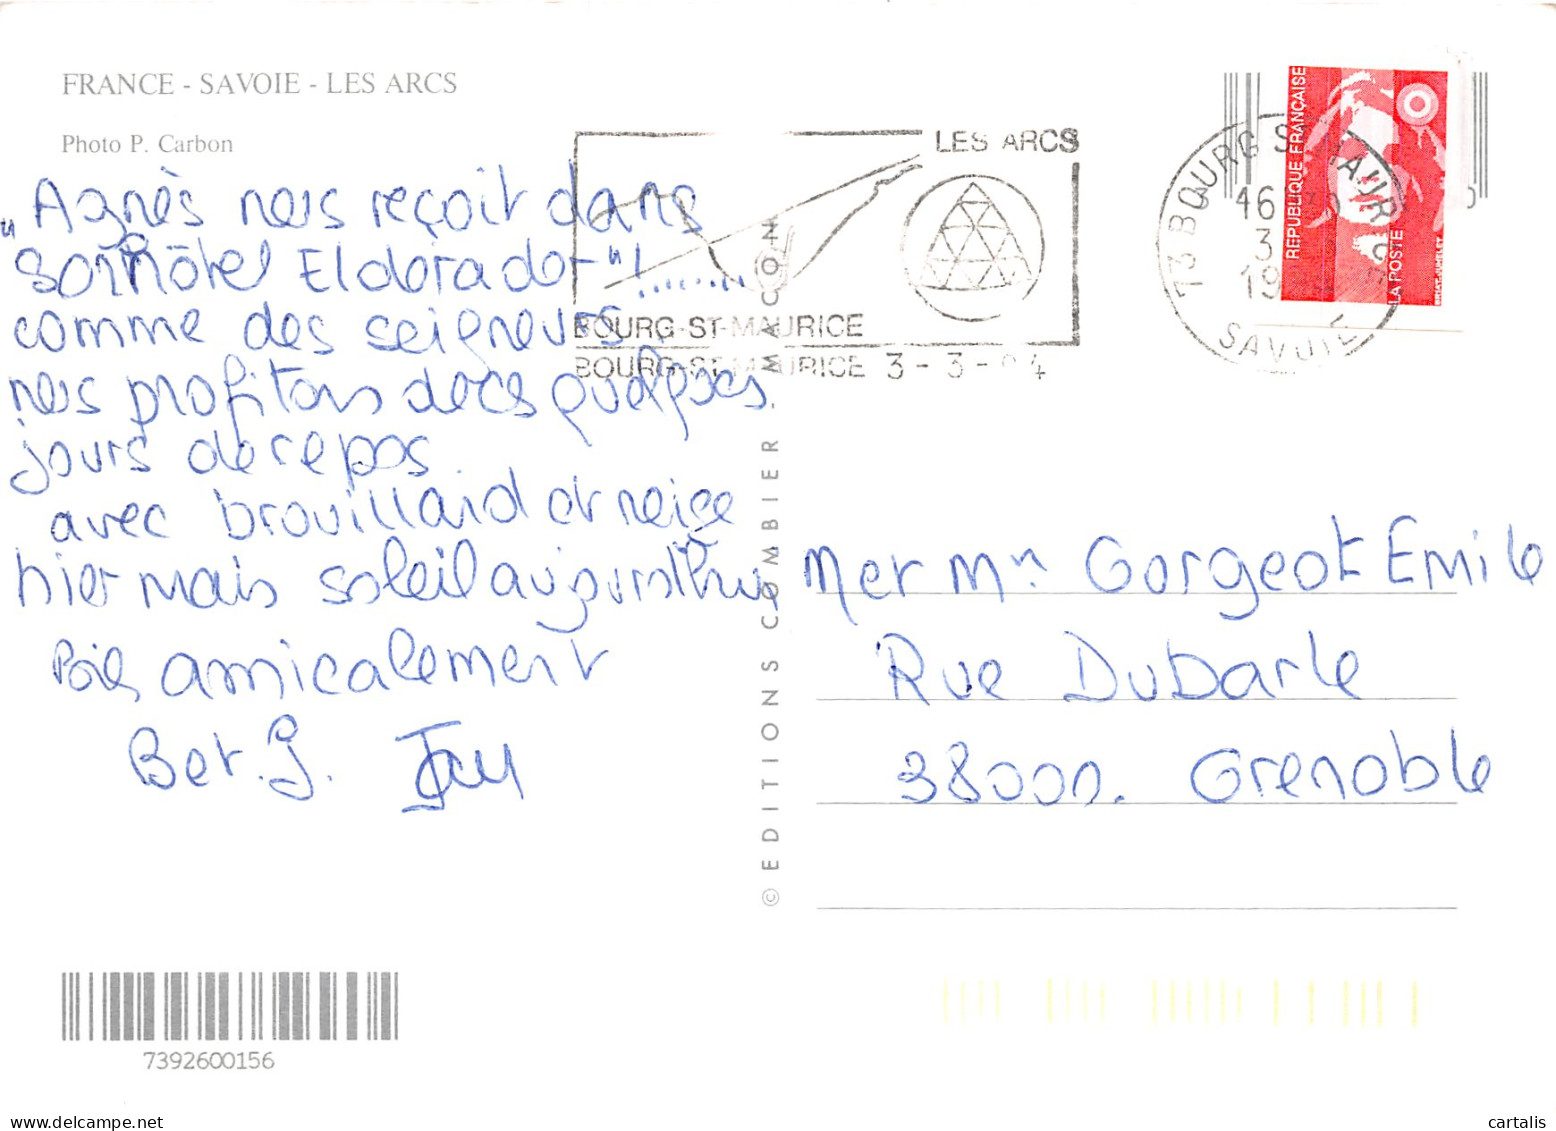 FRANCE - SAVOIE - LES ARCS
Photo P. Carbon
"Agnès nous reçoit dans
son hôtel Eldorador"!........
comme des seigneurs
nous profitons de ces quelques
jours de repos
avec brouillard et neige
hier mais soleil aujourd'hui
Bien amicalement
Bet. J.
LES ARCS
BOURG-ST-MAURICE
BOURG-ST-MAURICE 3-3-94
73 BOURG ST MAURICE
SAVOIE
RÉPUBLIQUE FRANÇAISE
LA POSTE
BRIAT-JUMELET
© EDITIONS COMBIER - MACON
M et Mme Gorgeot Emile
Rue Dubarle
38000. Grenoble
7392600156
www.cartalis.com
cartalis